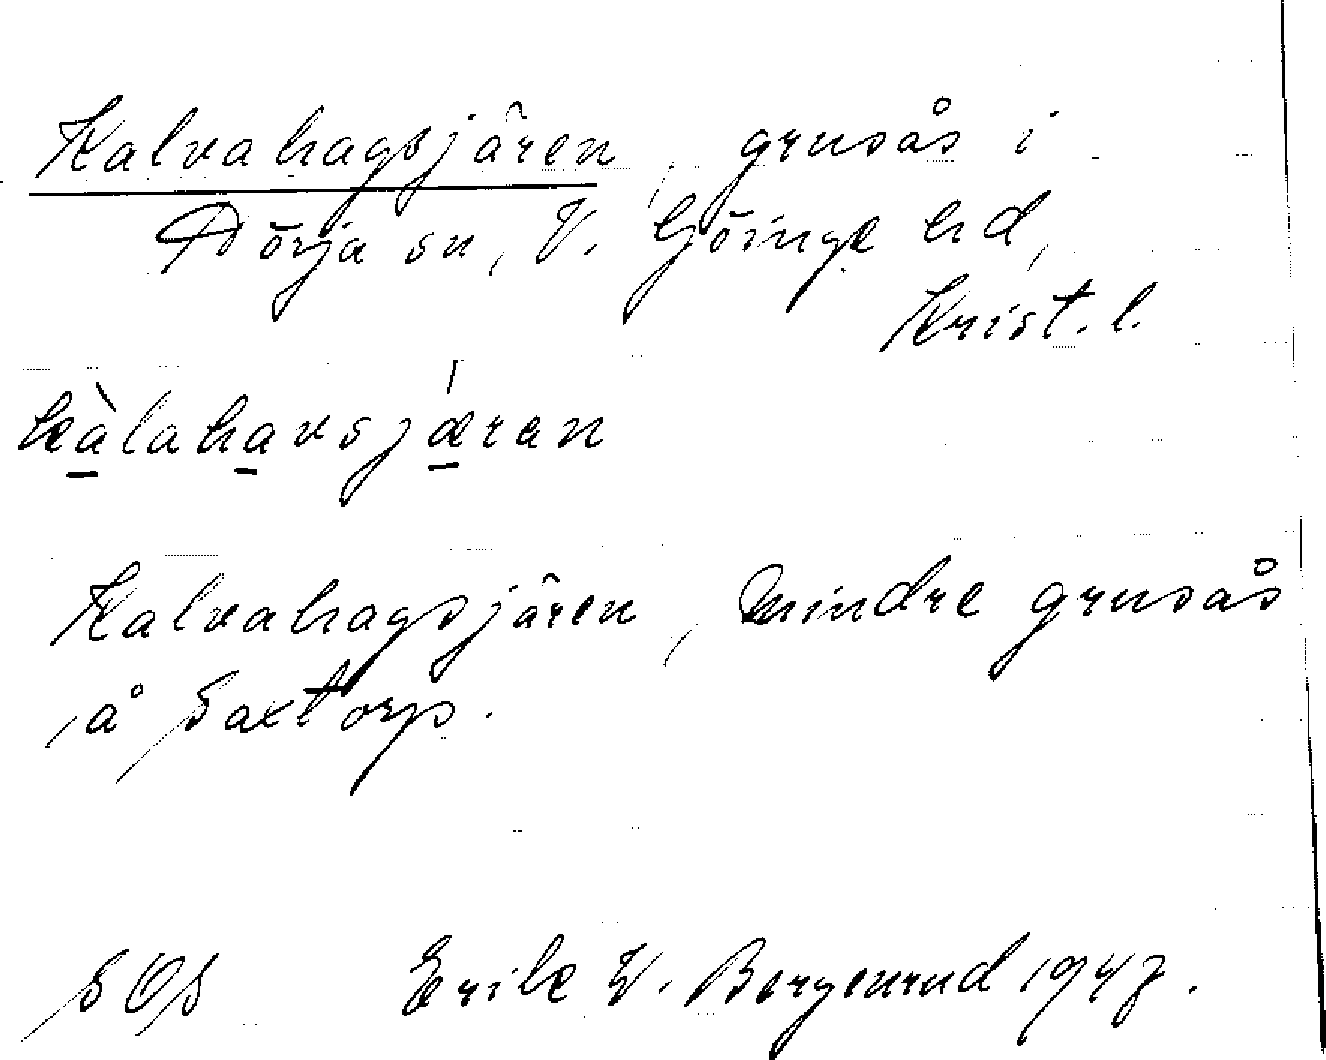 Kalvahagsjären, grusås i
Dörja sn, V. Göinge hd,
Krist. l.
kàlahavsjæ̍ren
Kalvahagsjären, mindre grusås
å Saxtorp.
SOS Erik W. Bergenrud 1947.